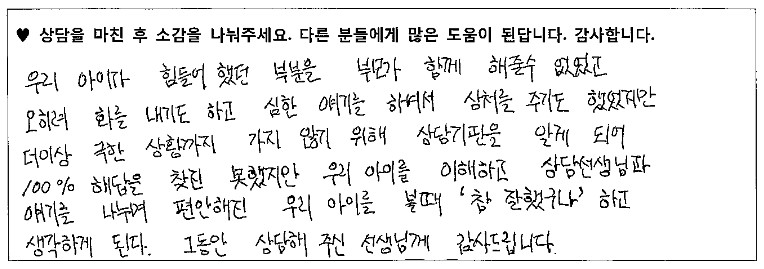 ♥ 상담을 마친 후 소감을 나눠주세요. 다른 분들에게 많은 도움이 된답니다. 감사합니다.
우리 아이가 힘들어 했던 부분을 부모가 함께 해줄수 없었고
오히려 화를 내기도 하고 심한 얘기를 하여서 상처를 주기도 했었지만
더이상 극한 상황까지 가지 않기 위해 상담기관을 알게 되어
100% 해답을 찾진 못했지만 우리 아이를 이해하고 상담선생님과
얘기를 나누며 편안해진 우리 아이를 볼때 '참 잘했구나' 하고
생각하게 된다. 그동안 상담해 주신 선생님께 감사드립니다.